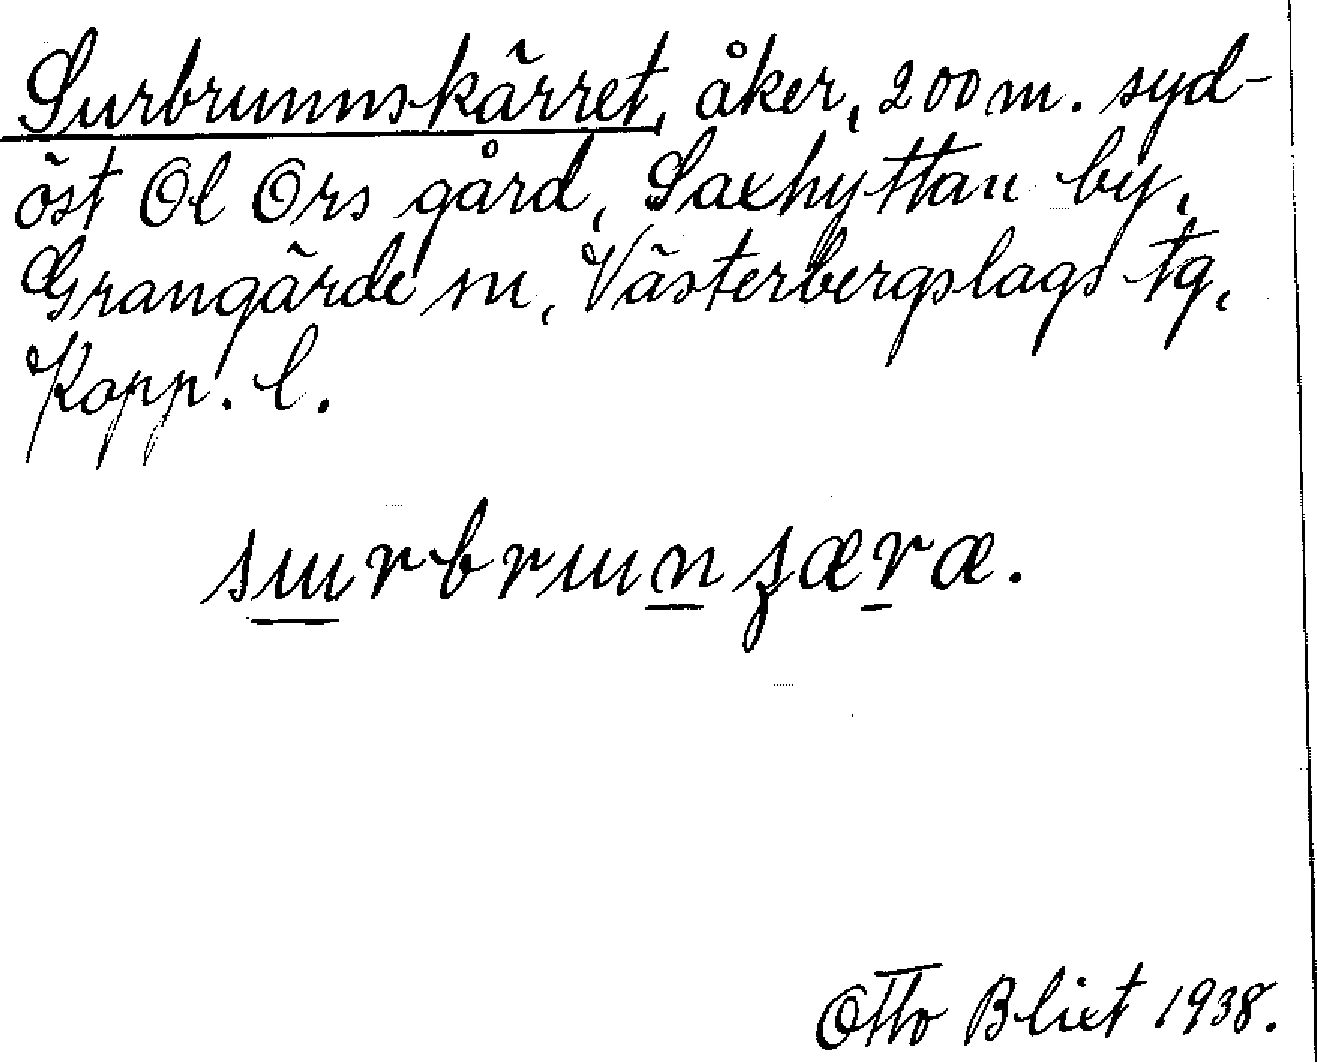 Surbrunnskärret, åker, 200 m. syd-
öst Ol Ors gård, Saxhyttan by,
Grangärde sn, Västerbergslags tg,
Kopp. l.
surbrunʂæræ.
Otto Blixt 1938.